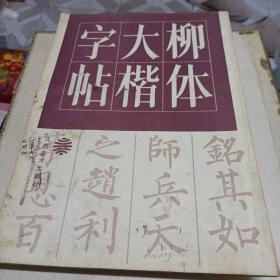 柳体
大楷
字帖
銘其如
師兵天
之趙利
百